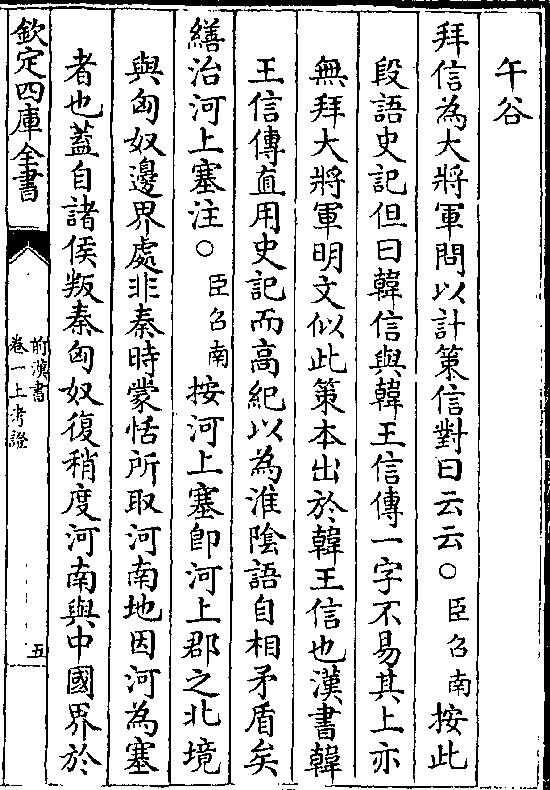 午谷
拜信為大將軍問以計策信對曰云云○臣召南按此
段語史記但曰韓信與韓王信傳一字不易其上亦
無拜大將軍明文似此策本出於韓王信也漢書韓
王信傳直用史記而高紀以為淮陰語自相矛盾矣
繕治河上塞注○臣召南按河上塞卽河上郡之北境
與匈奴邊界處非秦時蒙恬所取河南地因河為塞
者也蓋自諸侯叛秦匈奴復稍度河南與中國界於
欽定四庫全書
前漢書
卷一上考證
五